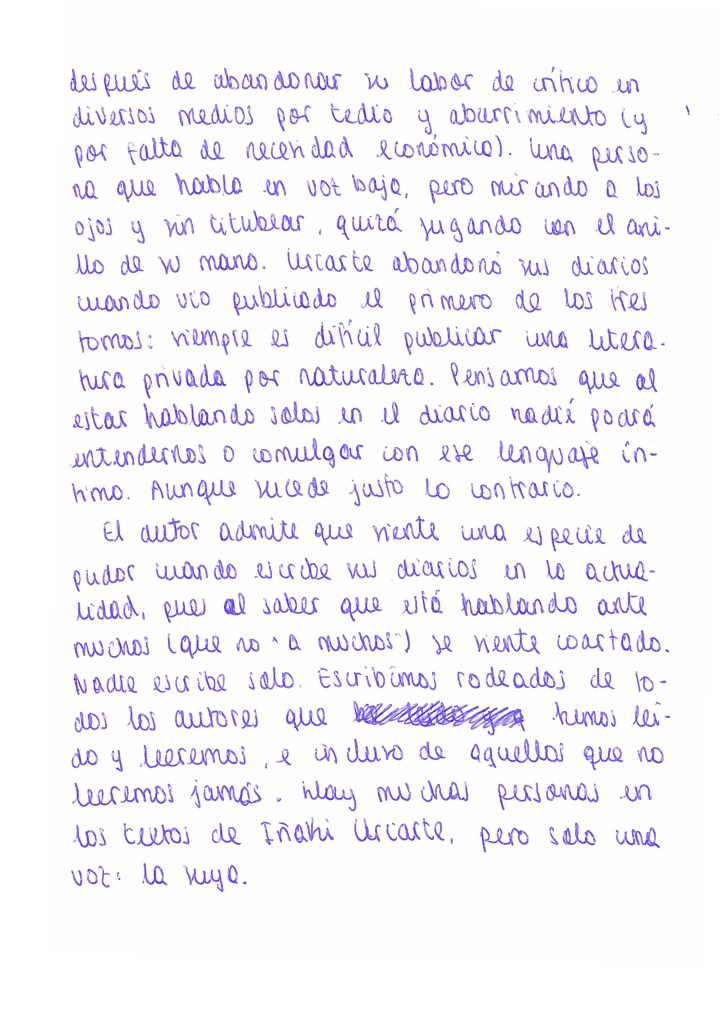 después de abandonar su labor de crítico en
diversos medios por tedio y aburrimiento (y
por falta de necesidad económica). Una perso-
na que habla en voz baja, pero mirando a los
ojos y sin titubear, quizá jugando con el ani-
llo de su mano. Uriarte abandonó sus diarios
cuando vio publicado el primero de los tres
tomos: siempre es difícil publicar una litera-
tura privada por naturaleza. Pensamos que al
estar hablando solos en el diario nadie podrá
entendernos o comulgar con ese lenguaje ín-
timo. Aunque sucede justo lo contrario.
El autor admite que siente una especie de
pudor cuando escribe sus diarios en la actua-
lidad, pues al saber que está hablando ante
muchos (que no "a muchos") se siente coartado.
Nadie escribe solo. Escribimos rodeados de to-
dos los autores que hemos leí-
do y leeremos, e incluso de aquellos que no
leeremos jamás. Hay muchas personas en
los textos de Iñaki Uriarte, pero solo una
voz: la suya.